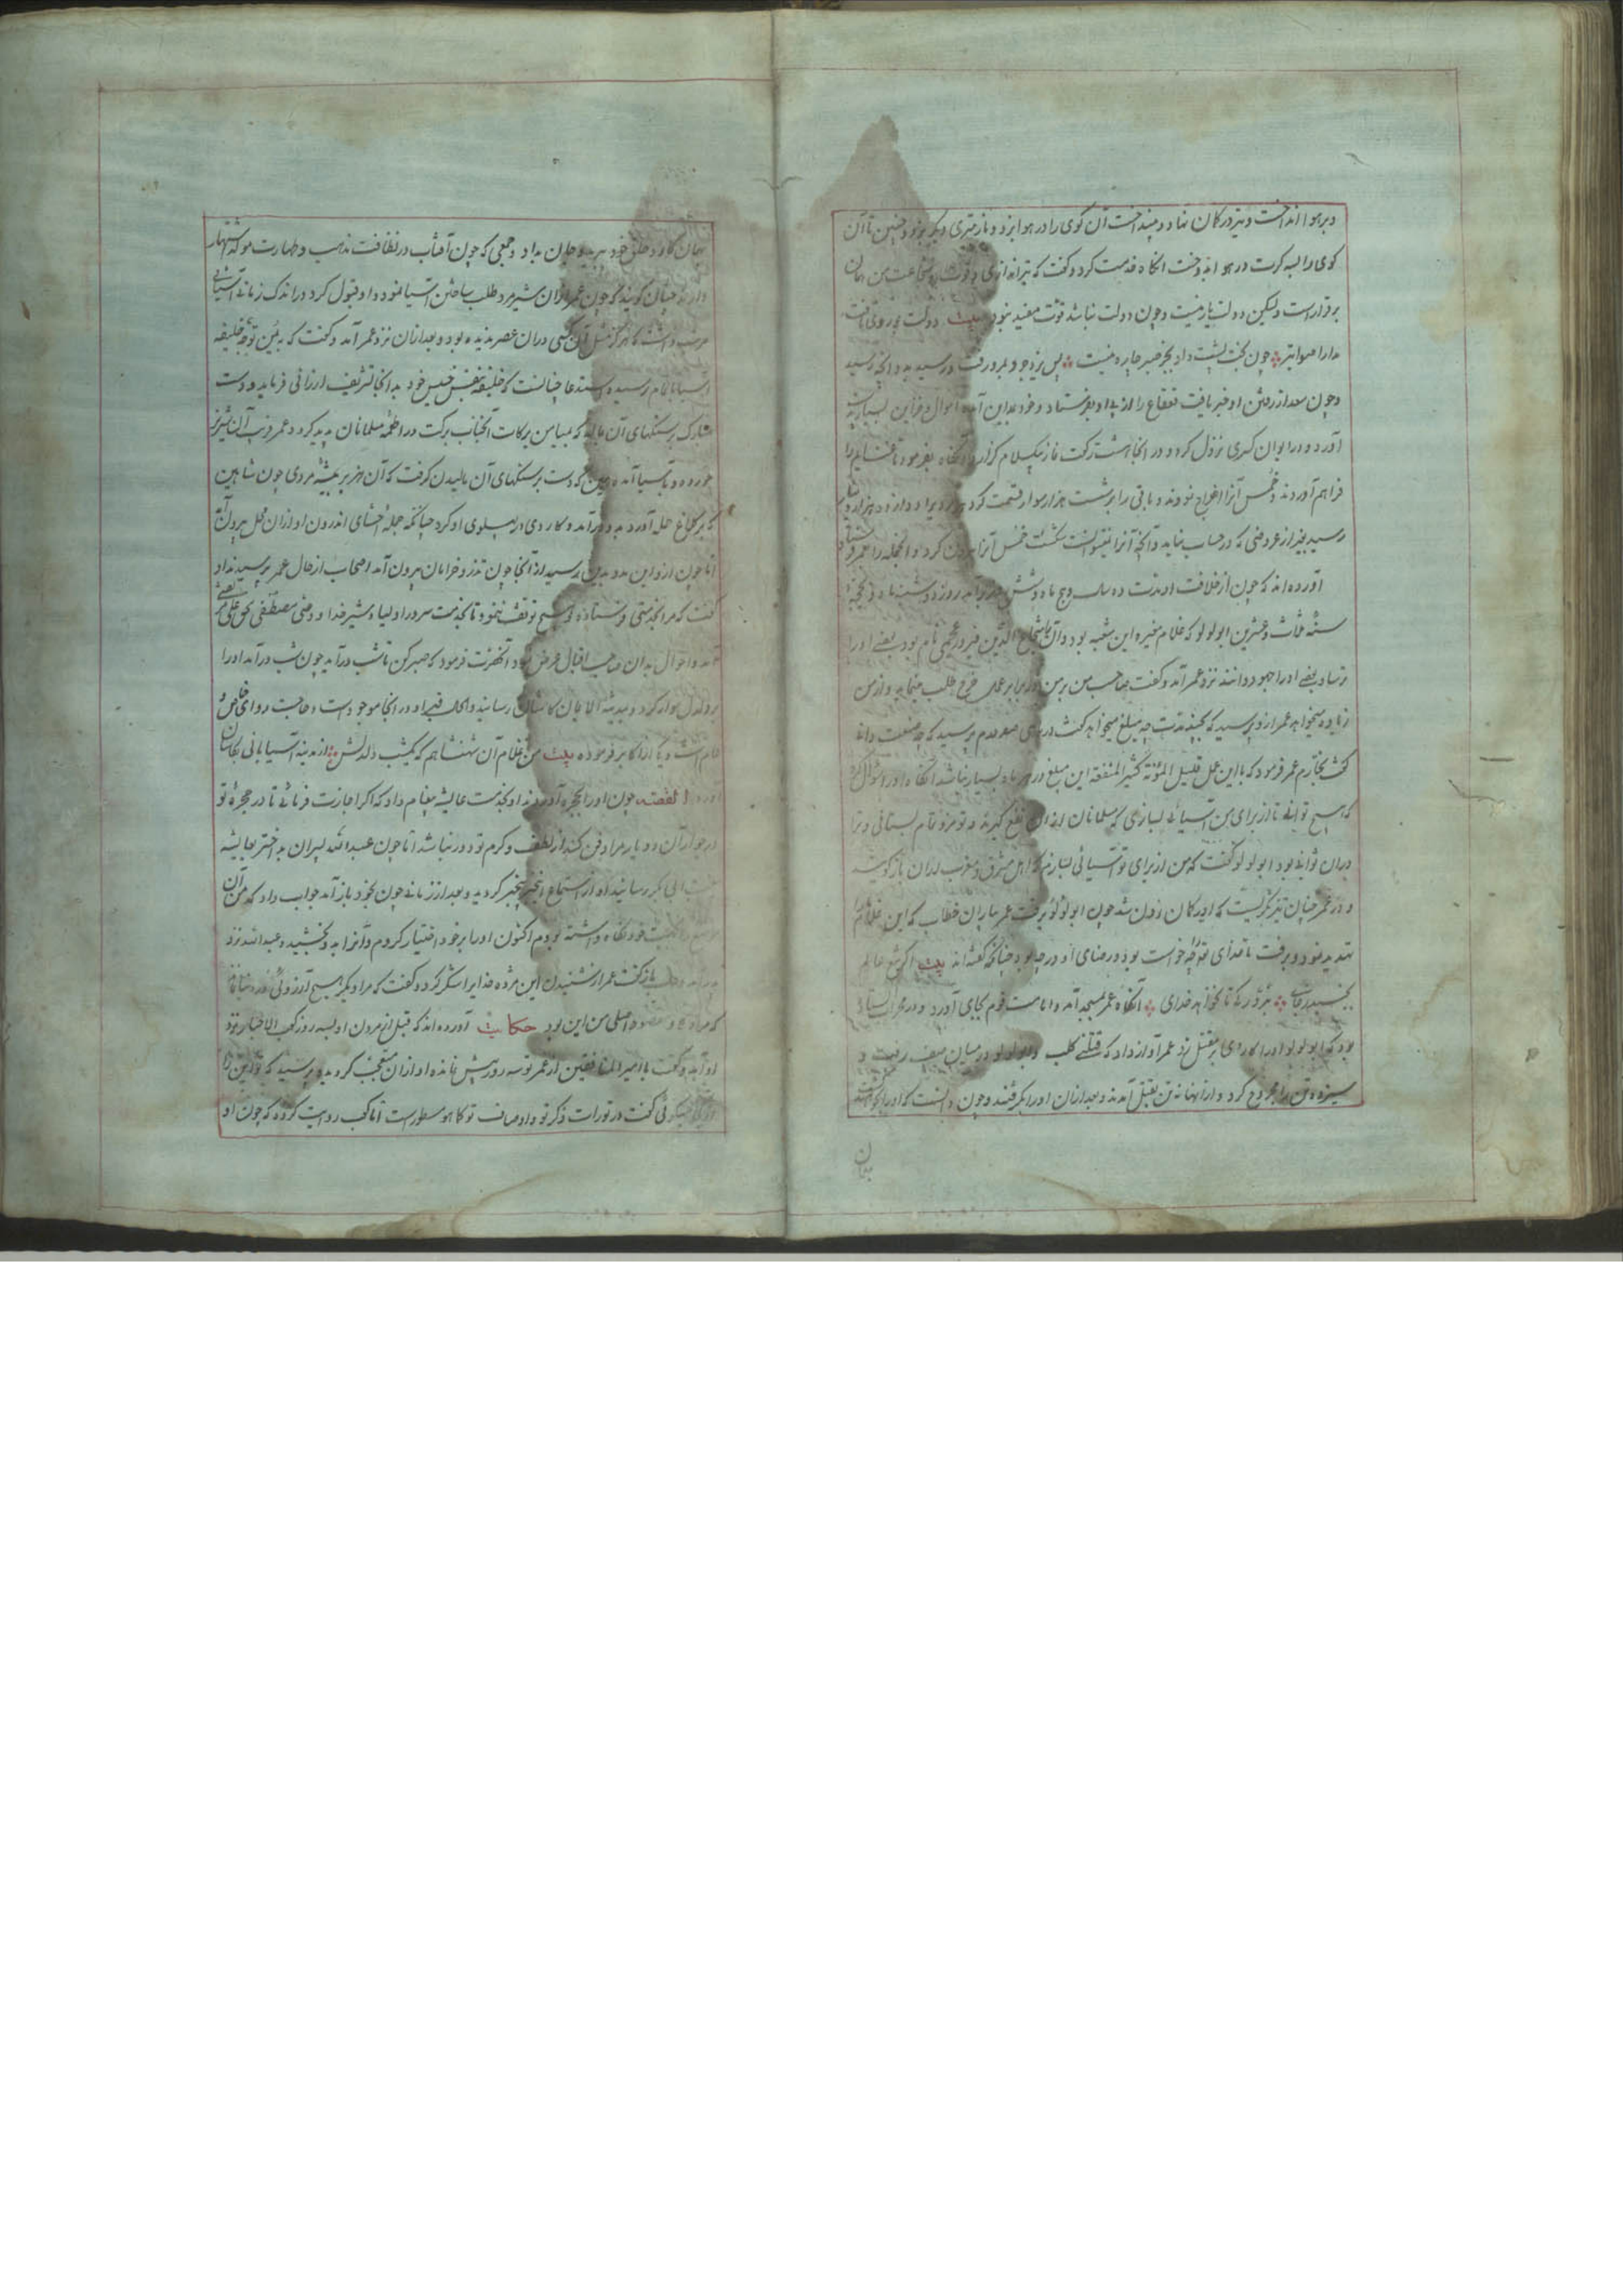 و بر هوا انداخت و تیر در کمان نهاد و بینداخت آن گوی را در هوا بزد و باز تیری دیگر بزد و چنین تا آن
گوی را سه کرت در هوا انداخت آنگاه خدمت کرد و گفت که تیراندازی و قوت و شجاعت من همان
برقرار است ولیکن دولت یار نیست و چون دولت نباشد قوت مفید نبود بیت دولت چو روی تافت
مدارا صوابتر چون بخت پشت داد بجز صبر چاره نیست پس یزدجرد بمرو رفت و رسید بدو آنچه رسید
و چون سعد از رفتن او خبر یافت قعقاع را از پی او بفرستاد و خود بمداین آمد و اموال و خزاین بسیار بدست
آورد و در ایوان کسری نزول کرد و در آنجا هشت رکعت نماز بیکسلام گزارد و آنگاه بفرمود تا غنایم را
فراهم آوردند و خمس آنرا اخراج نمودند و باقی را بر شصت هزار سوار قسمت کرد هر مردی را دوازده هزار دینار
رسید بغیر از عروضی که در حساب نیاید و آنچه آنرا نمیتوانست شکست خمس آنرا بیرون کرد و آنجمله را بعمر فرستاد
آورده‌اند که چون از خلافت او مدت ده سال و پنج ماه و شش روز برآمد روز دوشنبه ماه ذی حجه
سنه ثلاث و عشرین ابولولو که غلام مغیره ابن شعبه بود و آن شجاع الدین فیروز عجمی نام بود بعضی او را
ترسا و بعضی او را جهود دانند نزد عمر آمد و گفت صاحب من بر من در برابر عمل خرج طلب مینماید و از من
زیاده میخواهد عمر از وی پرسید که بچند مدت چه مبلغ میخواهد گفت در ماهی صد درم پرسید که چه صنعت دانی
گفت نجارم عمر فرمود که با این عمل قلیل المؤنة کثیر المنفعة این مبلغ در هر ماه بسیار نباشد آنگاه از او سؤال کرد
که هیچ توانی تا از برای من آسیائی بسازی که مسلمانان از آن نفع گیرند و تو مزد تمام بستانی و ترا
در آن ثوابی بود ابولولو گفت که من از برای تو آسیائی بسازم که اهل مشرق و مغرب از آن باز گویند
و در عمر چنان تیز نگریست که او بد گمان شد چون ابولولو برفت عمر بیاران خطاب که این غلام مرا
تهدید نمود و برفت تا قضای خدا چه خواست بود و رضای او در چه بود چنانکه گفته‌اند بیت اگر تیغ عالم
بجنبد ز جای نبرد رگی تا نخواهد خدای آنگاه عمر بمسجد آمد و امامت قوم بجای آورد و در محراب ایستاده
بود که ابولولو او را کاردی بر مقتل زد عمر آواز داد که قتلنی کلب و ابولولو در میان صف رفت و
سیزده تن را مجروح کرد و از آنها نه تن بقتل آمدند و بعد از آن او را بگرفتند و چون دانست که او را بخواهند
بهمان
بهمان کارد حلق خود ببرید و جان بداد و جمعی که چون آفتاب در نظافت مذهب و طهارت مولد اشتهار
دارند چنان گویند که چون عمر از آن شیرمرد طلب ساختن آسیا نمود و او قبول کرد در اندک زمانی آسیائی
مرتب داشت که هرگز مثل آن کسی در آن عصر ندیده بود و بعد از آن نزد عمر آمد و گفت که بیمن توجه خلیفه
آسیا باتمام رسیده استدعا چنانست که خلیفه بنفس نفیس خود بدانجا تشریف ارزانی فرماید و دست
مبارک بر سنگهای آن مالد که بمیامن برکات آنجناب برکت در اطعمه مسلمانان پدید گردد عمر فریب آن شیرنر
خورده و بآسیا آمده همین که دست بر سنگهای آن مالیدن گرفت که آن هژبر بیشه مردی چون شاهین
که بر کلاغ حمله آورد بدو درآمد و کاردی در پهلوی او کرد چنانکه جمله احشای اندرون او از آن محل بیرون آمد
اما چون از و این بدو بدین رسید از آنجا چون تذرو خرامان بیرون آمد اصحاب از حال عمر پرسیدند او
گفت که مرا بخدمتی فرستاده و هیچ توقف ننمود تا بخدمت سرور اولیا و شیر خدا و وصی مصطفی بحق علی مرتضی
آمد و احوال بدان صاحب اقبال عرض نمود آنحضرت فرمود که صبر کن تا شب درآید چون شب درآمد او را
بر دلدل سوار کرد و بمدینة المؤمنین کاشان رسانید و الحال قبر او در آنجا موجود است و حاجت روای خاص و
عام است و یکی از اکابر فرموده بیت من غلام آن شهنشاهم که یکشب دلدلش از مدینه آسیابانی بکاشان
آورد القصه چون او را بحجره آوردند او بخدمت عایشه پیغام داد که اگر اجازت فرمائی تا در حجرهٔ تو
در جوار آن دو یار مرا دفن کنند از لطف و کرم تو دور نباشد اما چون عبدالله پسر آن به اختر بعایشه
بنت ابی بکر رسانید او از استماع آن خبر بیخبر گردید و بعد از زمانی چون بخود باز آمد جواب داد که من آن
موضع را بجهت خود نگاه داشته بودم اکنون او را بر خود اختیار کردم و آنرا بدو بخشیدم عبدالله نزد
پدر آمد و باز گفت عمر از شنیدن این مژده خدای را شکر کرد و گفت که مرا دیگر هیچ آرزوئی نمانده
که مراد و مقصود اصلی من این بود حکایت آورده‌اند که قبل از مردن او بسه روز کعب الاحبار نزد
او آمد و گفت یا امیر المنافقین از عمر تو سه روز بیش نمانده او از آن متعجب گردید و پرسید که تو این را
از کجا میگوئی گفت در تورات ذکر تو و اوصاف تو کما هو مسطور است اما کعب روایت کرده که چون او